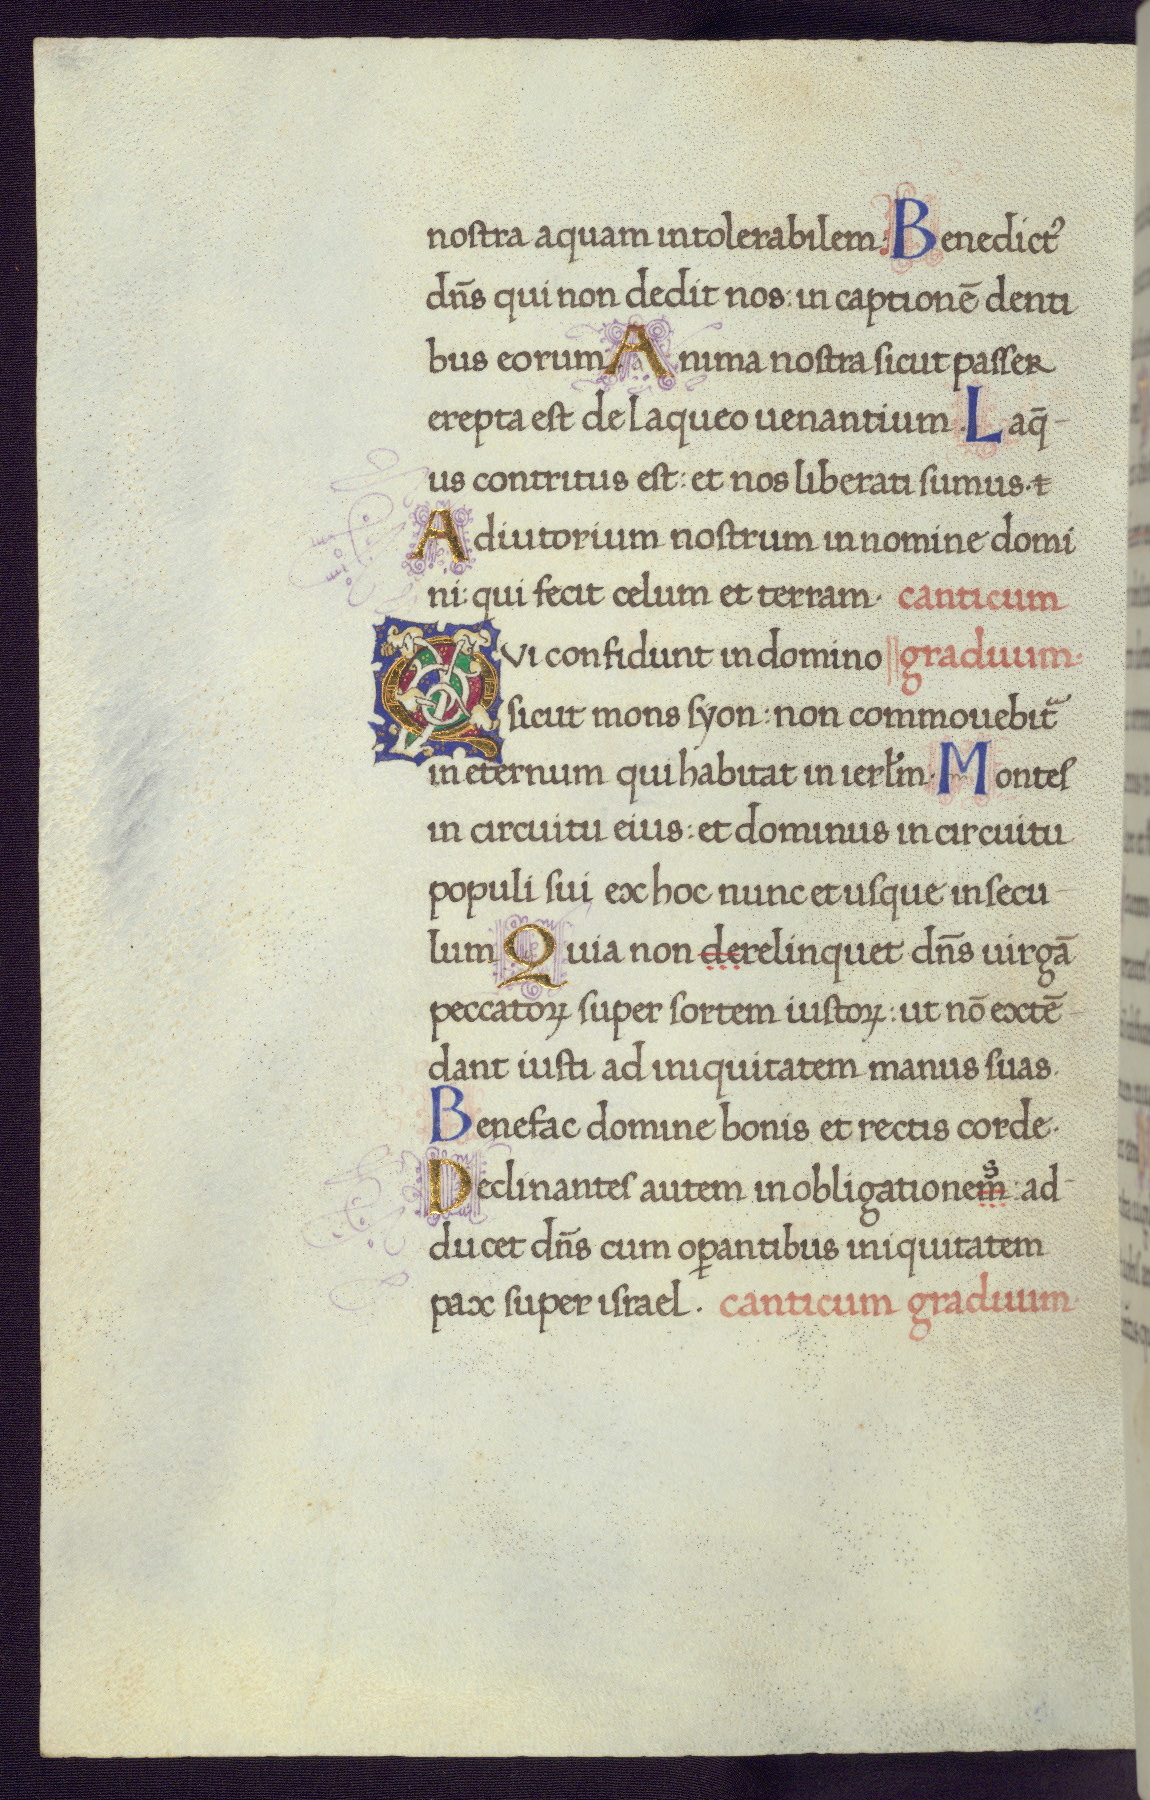 nostra aquam intolerabilem: Benedictꝰ
dn̄s qui non dedit nos: in captionē denti
bus eorum. Anima nostra sicut passer
erepta est de laqueo uenantium. Laq̄-
us contritus est: et nos liberati sumus. t
Adiutorium nostrum in nomine domi
ni: qui fecit celum et terram. canticum
QVI confidunt in domino graduum.
sicut mons syon: non commouebit᷑
in eternum qui habitat in ierl̄m. Montes
in circuitu eius: et dominus in circuitu
populi sui, ex hoc nunc et usque in secu-
lum Quia non derelinquet dn̄s uirgā
peccatoꝝ super sortem iustoꝝ: ut nō extē-
dant iusti ad iniquitatem manus suas.
Benefac domine bonis et rectis corde.
Declinantes autem in obligationem̄s: ad-
ducet dn̄s cum oꝑantibus iniquitatem
pax super israel. canticum graduum.